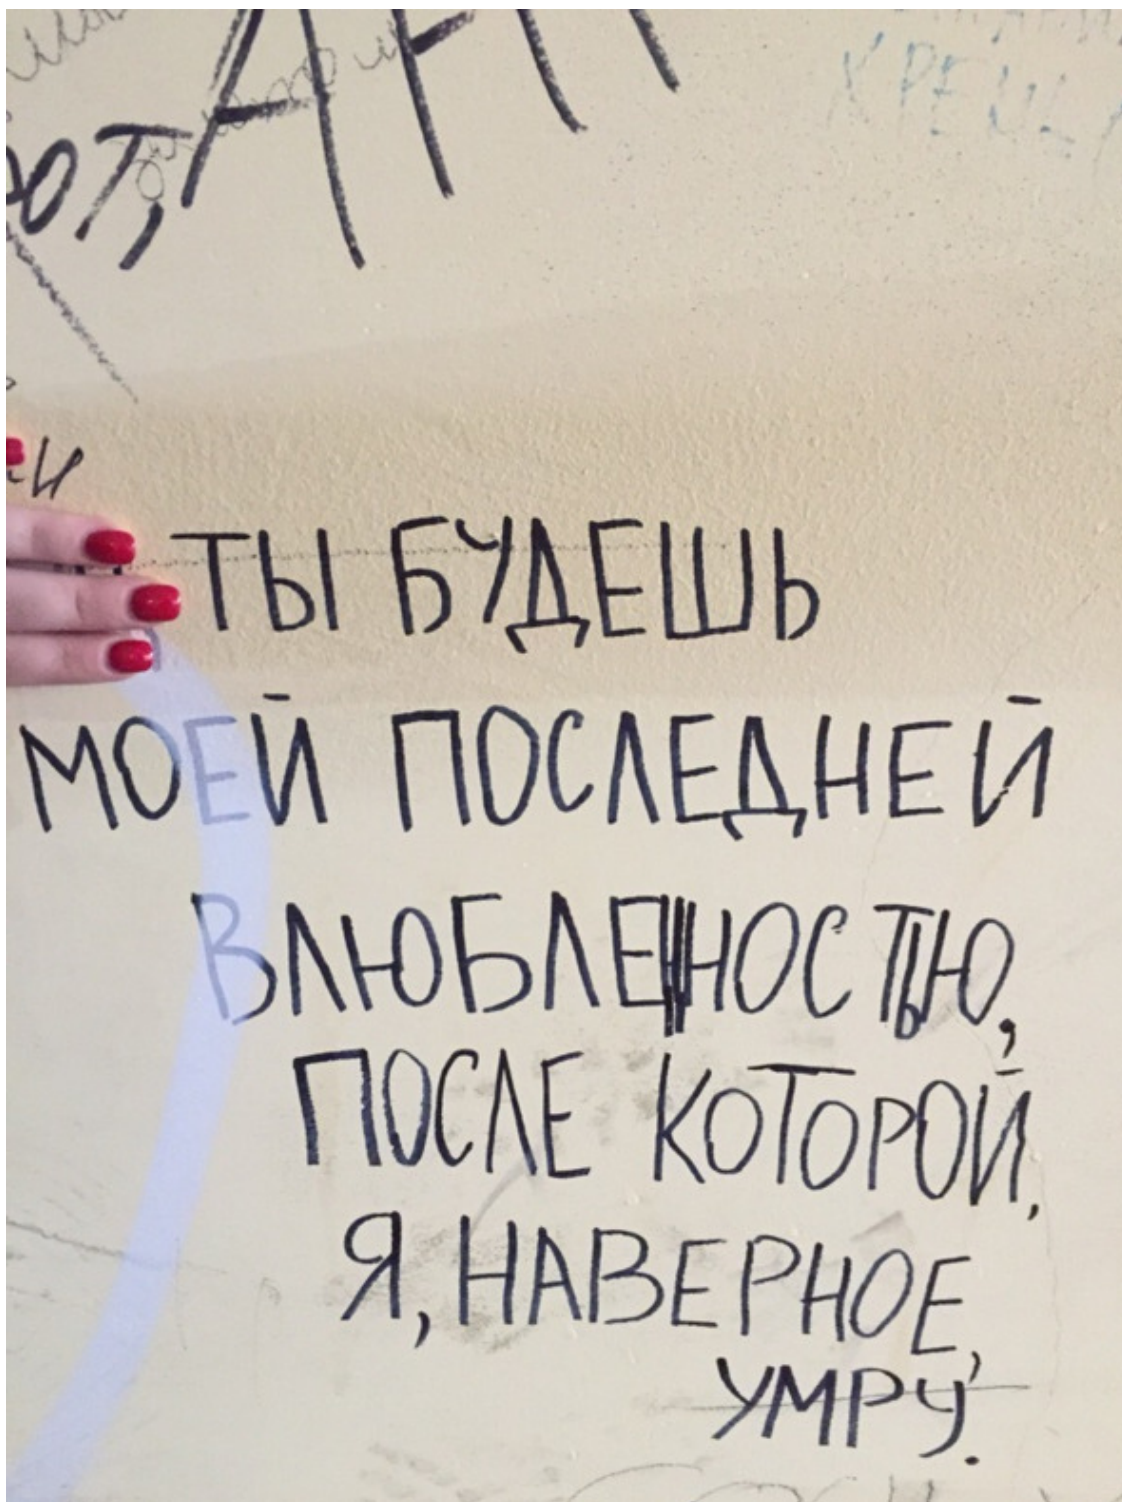 ТЫ БУДЕШЬ
МОЕЙ ПОСЛЕДНЕЙ
ВЛЮБЛЕННОСТЬЮ,
ПОСЛЕ КОТОРОЙ,
Я, НАВЕРНОЕ,
УМРУ.